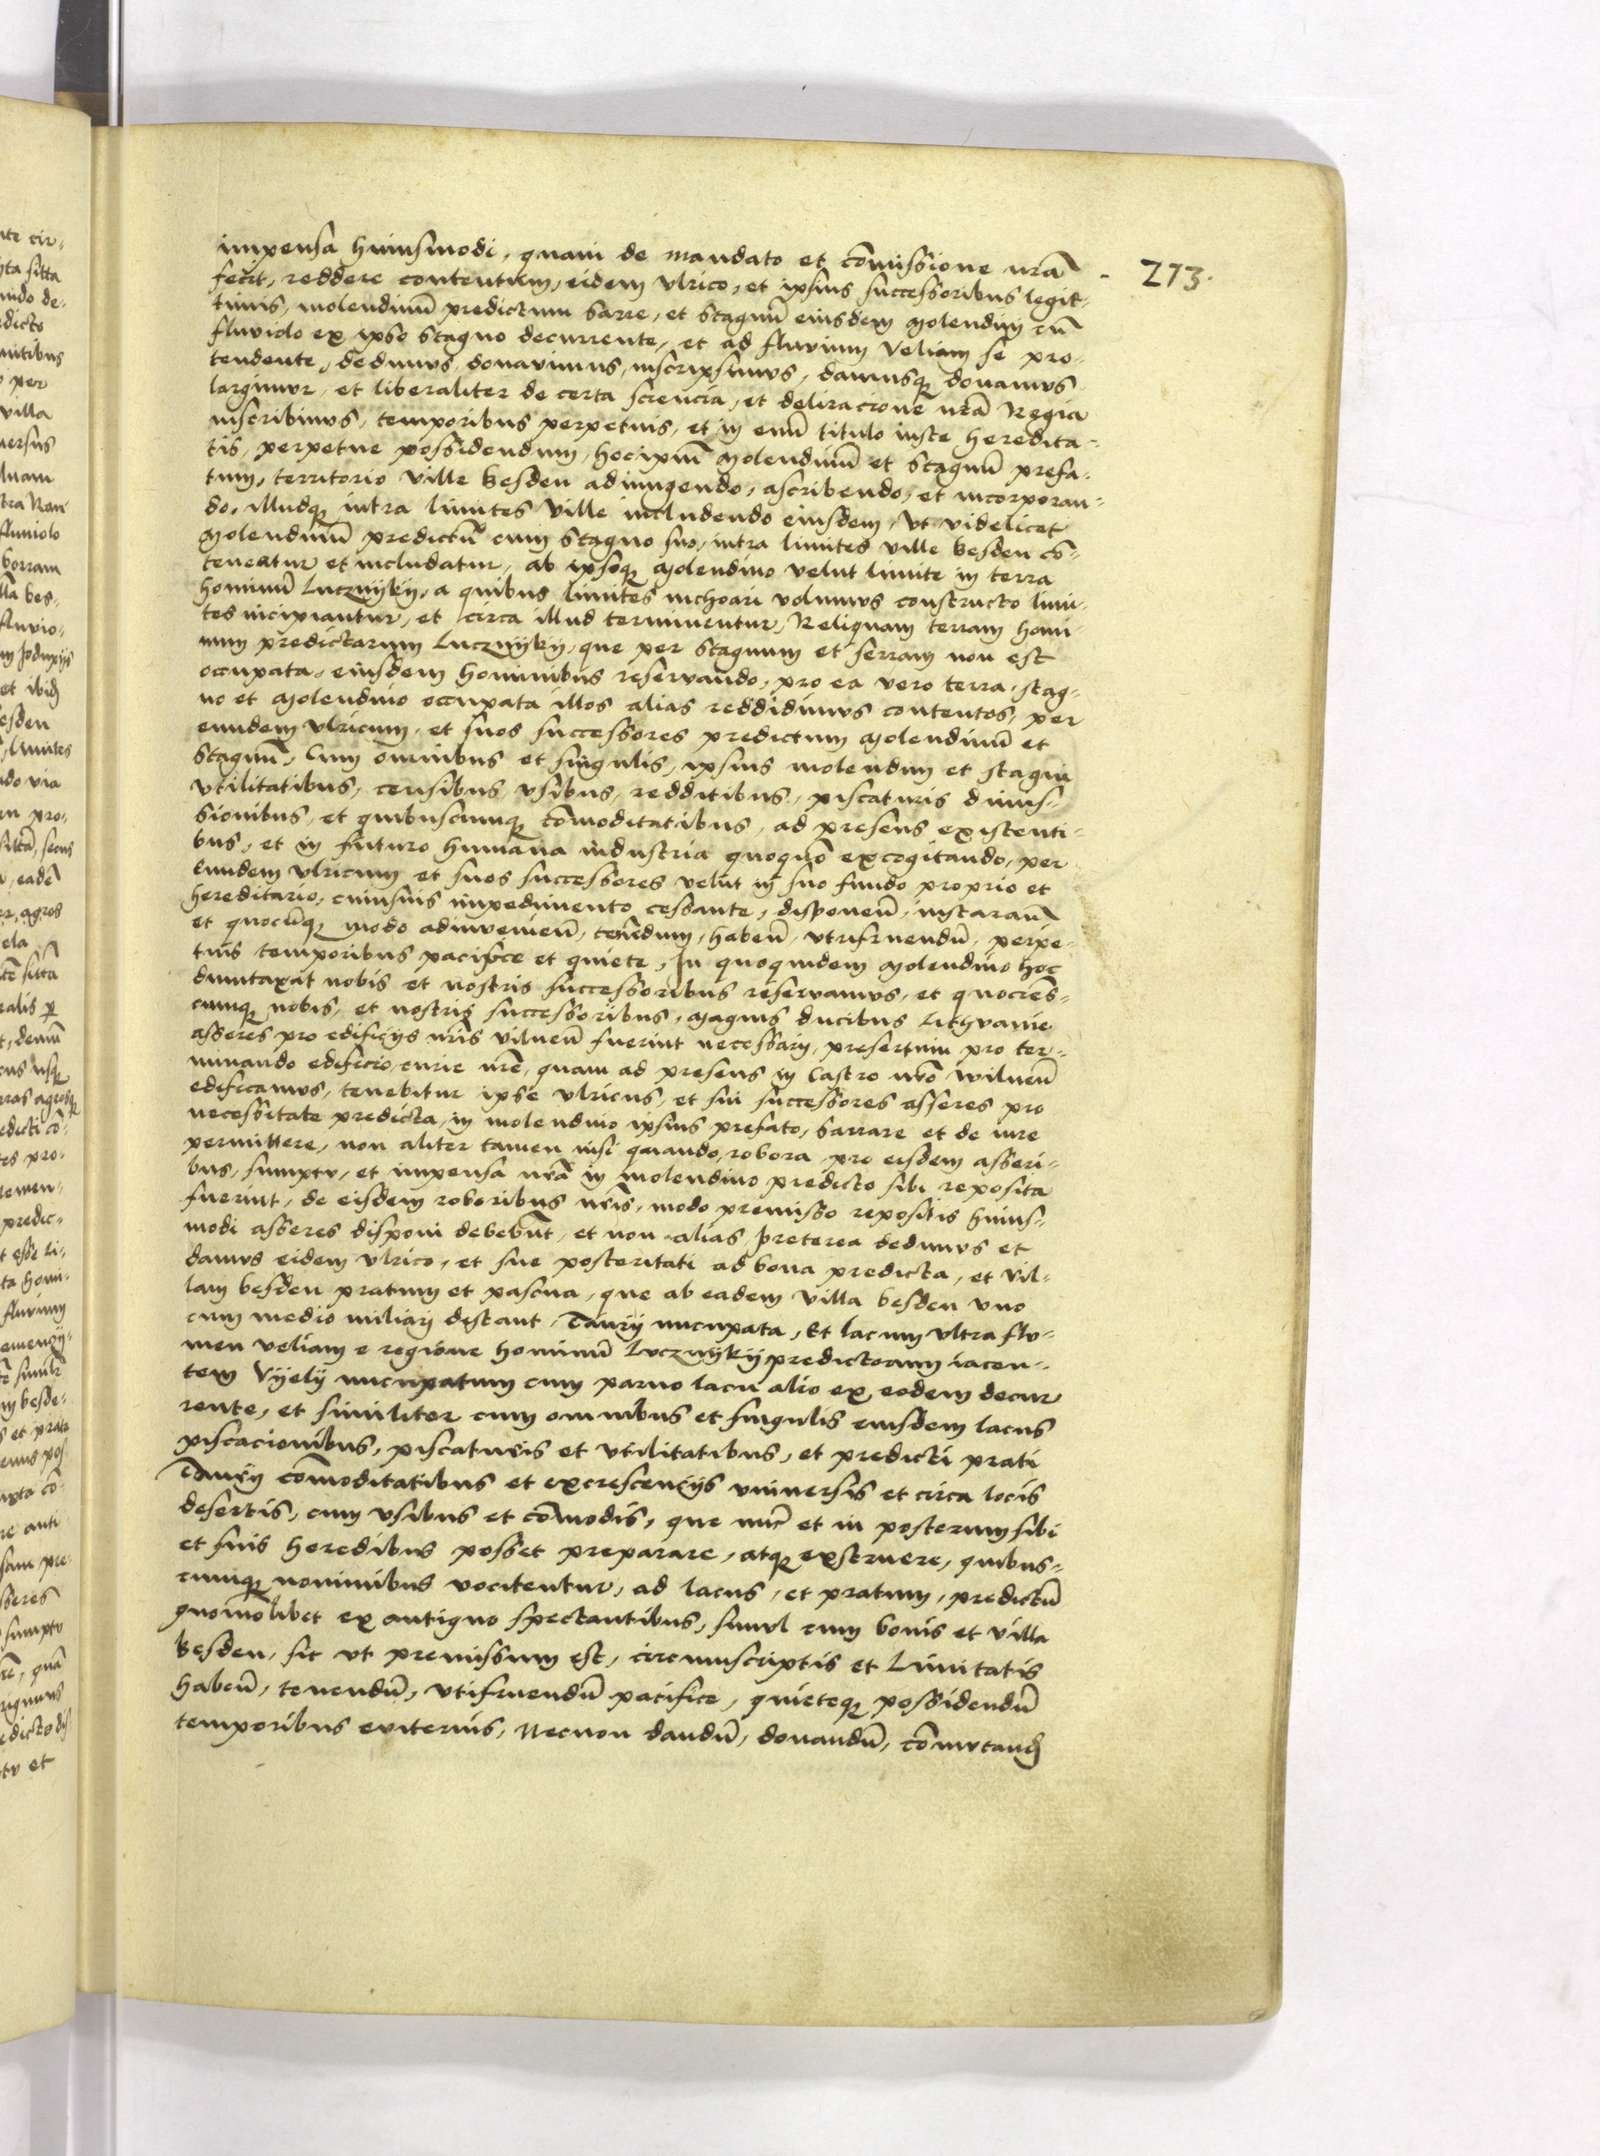 273.
impensa huiusmodi, quam de mandato et com̄issione nr̄a
fecit, reddere contentum, eidem Vlrico, et ipsius successoribus legit-
timis, molendinum predictum Sarre, et Stagnū eiusdem Molendini cū
fluviolo ex ipso Stagno decurrente, et ad fluvium Veliam se pro-
tendente, dedimus, donavimus, inscripsimus, damusq donamus
largimur, et liberaliter de certa sciencia, et deliracione nr̄a Regia
inscribimus, temporibus perpetuis, et in eum titulo iuste heredita-
tis, perpetue possidendum, hoc ipm̄ Molendinū et Stagnū prefa-
tum, territorio Ville Besden adiungendo, ascribendo, et incorporan-
do, illudq intra limites Ville includendo eiusdem, Vt videlicet
Molendinū predictū cum Stagno suo, intra limites ville Besden cō-
teneatur et includatur, ab ipsoq Molendino velut limite in terra
hominū Lucznyky, a quibus limites inchoari volumus constructo limi-
tes incipiantur, et circa illud terminentur, Reliquam terram homi-
num predictarum Lucznyky, que per Stagnum et serram non est
occupata, eiusdem hominibus reservando, pro ea vero terra, stag-
no et Molendino occupata illos alias reddidimus contentos, per
eundem Vlricum, et suos successores predictum Molendinū et
Stagnū, Cum omnibus et singulis, ipsius molendini et stagni
Vtilitatibus, censibus, vsibus, redditibus, piscaturis dimis-
sionibus, et quibuscumq com̄oditatibus, ad presens existenti-
bus, et in futuro humana industria quoquō excogitando, per
Eundem Vlricum et suos successores velut in suo fundo proprio et
hereditario, cuiusuis impedimento cessante, disponen̄, instaran̄
et quocūq modo adinvenien̄, tenēdum, haben̄, vtifruendū, perpe-
tuis temporibus pacifice et quiete, In quoquidem Molendino hoc
dumtaxat nobis et nostris successoribus reservamus, et quociēs-
cumq nobis, et nostris successoribus, Magnis ducibus Lithvanie
asseres pro edificijs nr̄is Vilnen̄ fuerint necessarij, presertim pro ter-
minando edificio, curie nr̄e, quam ad presens in Castro nr̄o Wilnen̄
edificamus, tenebitur ipse Vlricus, et sui successores asseres pro
necessitate predicta, in molendino ipsius prefato, Sarrare et de iure
permittere, non aliter tamen nisi quando, robora pro eisdem asseri-
bus, sumptv, et impensa nr̄a in molendino predicto sibi reposita
fuerint, de eisdem roboribus nr̄is, modo premisso repositis huius-
modi asseres disponi debebūt, et non alias, Preterea dedimus et
damus eidem Vlrico, et sue posteritati ad bona predicta, et vil-
lam besden pratum et pascua, que ab eadem villa besden vno
cum medio miliarj distant, Tawry nucupata, Et lacum vltra flv-
men veliam e regione hominū Lvcznykij predictorum iacen-
tem Vyely nucupatum cum paruo lacu alio ex eodem decur
rente, et similiter cum omnibus et singulis eiusdem lacus
piscacionibus, piscaturis et vtilitatibus, et predicti prati
Tawry com̄oditatibus et excrescencijs vniuersis et circa locis
desertis, cum vsibus et com̄odis, que nūc et in posterum sibi
et suis heredibus posset preparare, atq exstruere, quibus-
cumq nominibus vocitentur, ad lacus, et pratum, predictū
quomōlibet ex antiquo spectantibus, simvl cum bonis et villa
Besden, sic vt premissum est, circumscriptis et Limitatis
haben̄, tenendū, vtifruendū pacifice, quieteq possidendū
temporibus eviternis, Necnon dandū, donandū, com̄vtand